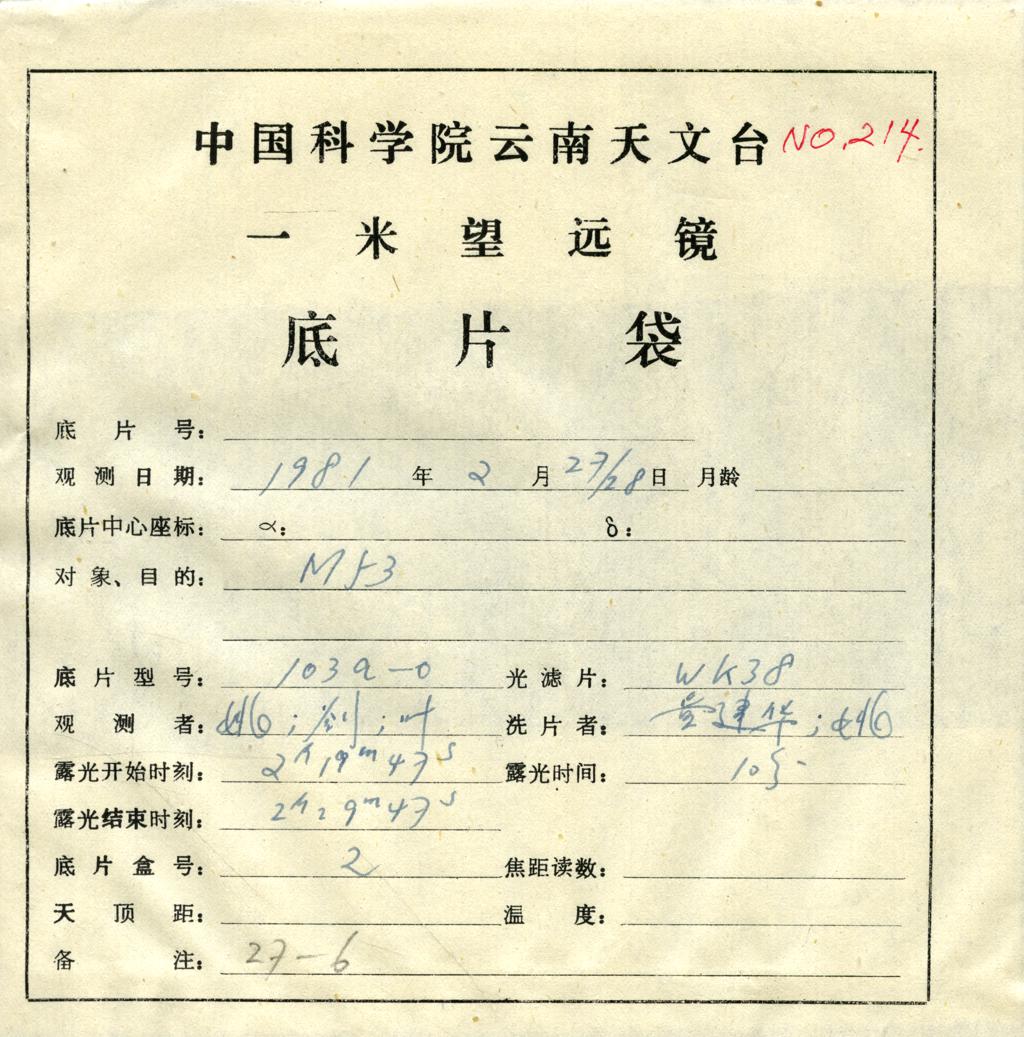 中国科学院云南天文台 NO.214.
一米望远镜
底片袋
底片号：
观测日期： 1981 年 2 月 27/28 日 月龄
底片中心座标： α： δ：
对象、目的： M53
底片型号： 103a-0 光滤片： WK38
观测者： ；刘；叶 洗片者： 建华；
露光开始时刻： 2h19m47s 露光时间： 10分
露光结束时刻： 2h29m47s
底片盒号： 2 焦距读数：
天顶距： 温度：
备注： 27-6